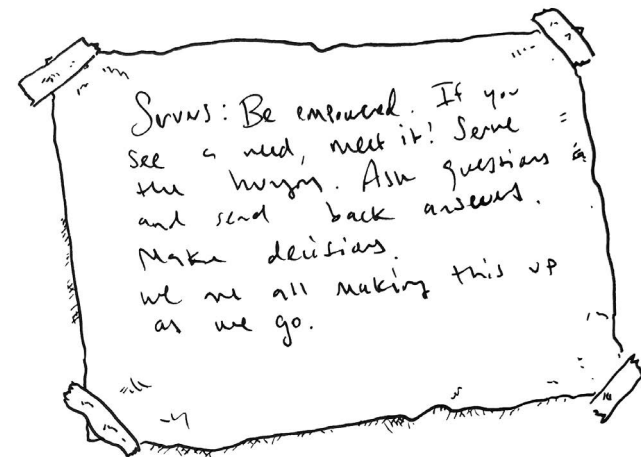 Servers: Be empowered. If you
see a need, meet it! Serve
the hungry. Ask questions
and send back answers.
Make decisions.
we are all making this up
as we go.